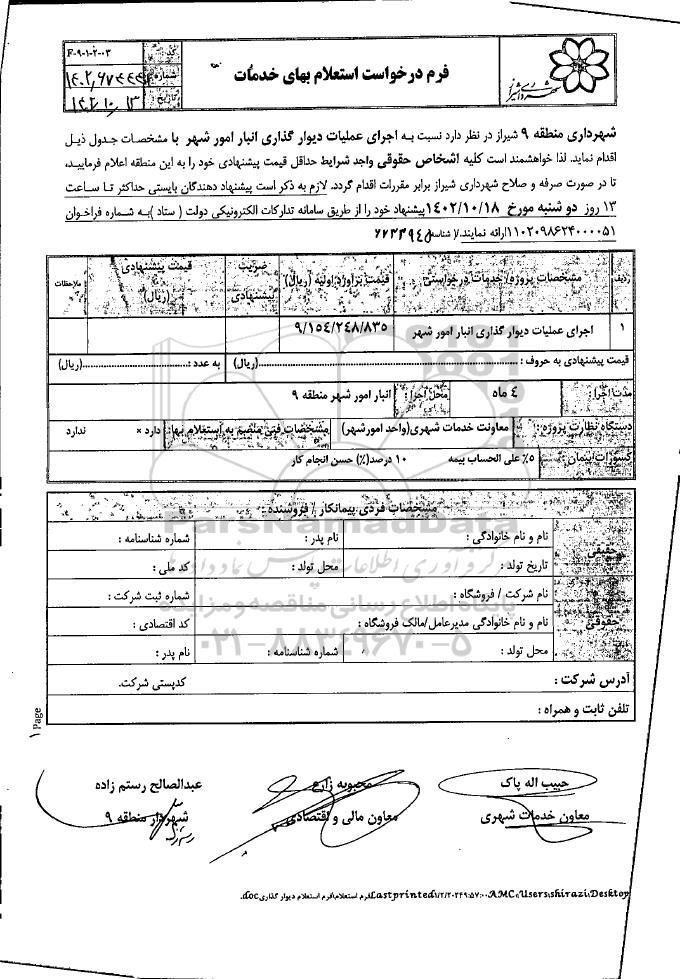 F-۹-۱-۲-۰۳
کد:
شماره:
تاریخ:
۱۴۰۲/۱۰/۱۳
فرم درخواست استعلام بهای خدمات
شهرداری شیراز
شهرداری منطقه ۹ شیراز در نظر دارد نسبت به اجرای عملیات دیوار گذاری انبار امور شهر با مشخصات جدول ذیل
اقدام نماید. لذا خواهشمند است کلیه اشخاص حقوقی واجد شرایط حداقل قیمت پیشنهادی خود را به این منطقه اعلام فرمایید،
تا در صورت صرفه و صلاح شهرداری شیراز برابر مقررات اقدام گردد. لازم به ذکر است پیشنهاد دهندگان بایستی حداکثر تا ساعت
۱۳ روز دو شنبه مورخ ۱۴۰۲/۱۰/۱۸ پیشنهاد خود را از طریق سامانه تدارکات الکترونیکی دولت ( ستاد )به شماره فراخوان
۱۱۰۲۰۹۸۶۲۴۰۰۰۰۵۱ارائه نمایند.
ردیف
مشخصات پروژه/ خدمات درخواستی
قیمت برآورد اولیه (ریال)
ضریب پیشنهادی
قیمت پیشنهادی (ریال)
ملاحظات
۱
اجرای عملیات دیوار گذاری انبار امور شهر
۹/۱۵۴/۲۴۸/۸۳۵
قیمت پیشنهادی به حروف :..........(ریال)
به عدد :..........(ریال)
مدت اجرا :
۴ ماه
محل اجرا :
انبار امور شهر منطقه ۹
دستگاه نظارت پروژه :
معاونت خدمات شهری(واحد امورشهر)
مشخصات فنی منضم به استعلام بها:
دارد ×
ندارد
کسورات پیمان :
۵٪ علی الحساب بیمه
۱۰ درصد(٪) حسن انجام کار
مشخصات فردی پیمانکار / فروشنده :
حقیقی
نام و نام خانوادگی :
نام پدر :
شماره شناسنامه :
تاریخ تولد :
محل تولد :
کد ملی :
حقوقی
نام شرکت / فروشگاه :
شماره ثبت شرکت :
نام و نام خانوادگی مدیرعامل/مالک فروشگاه :
کد اقتصادی :
محل تولد :
شماره شناسنامه :
نام پدر :
آدرس شرکت :
کدپستی شرکت.
تلفن ثابت و همراه :
ParsNamadData
پایگاه اطلاع رسانی مناقصه و مزایده
۰۲۱-۸۸۳۴۹۶۷۰-۵
۱ Page
حبیب اله پاک
معاون خدمات شهری
محبوبه زارع
معاون مالی و اقتصادی
عبدالصالح رستم زاده
شهردار منطقه ۹